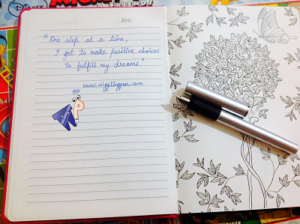 "One step at a time,
I got to make positive choices
to fulfill my dreams"
www.wigglingpen.com